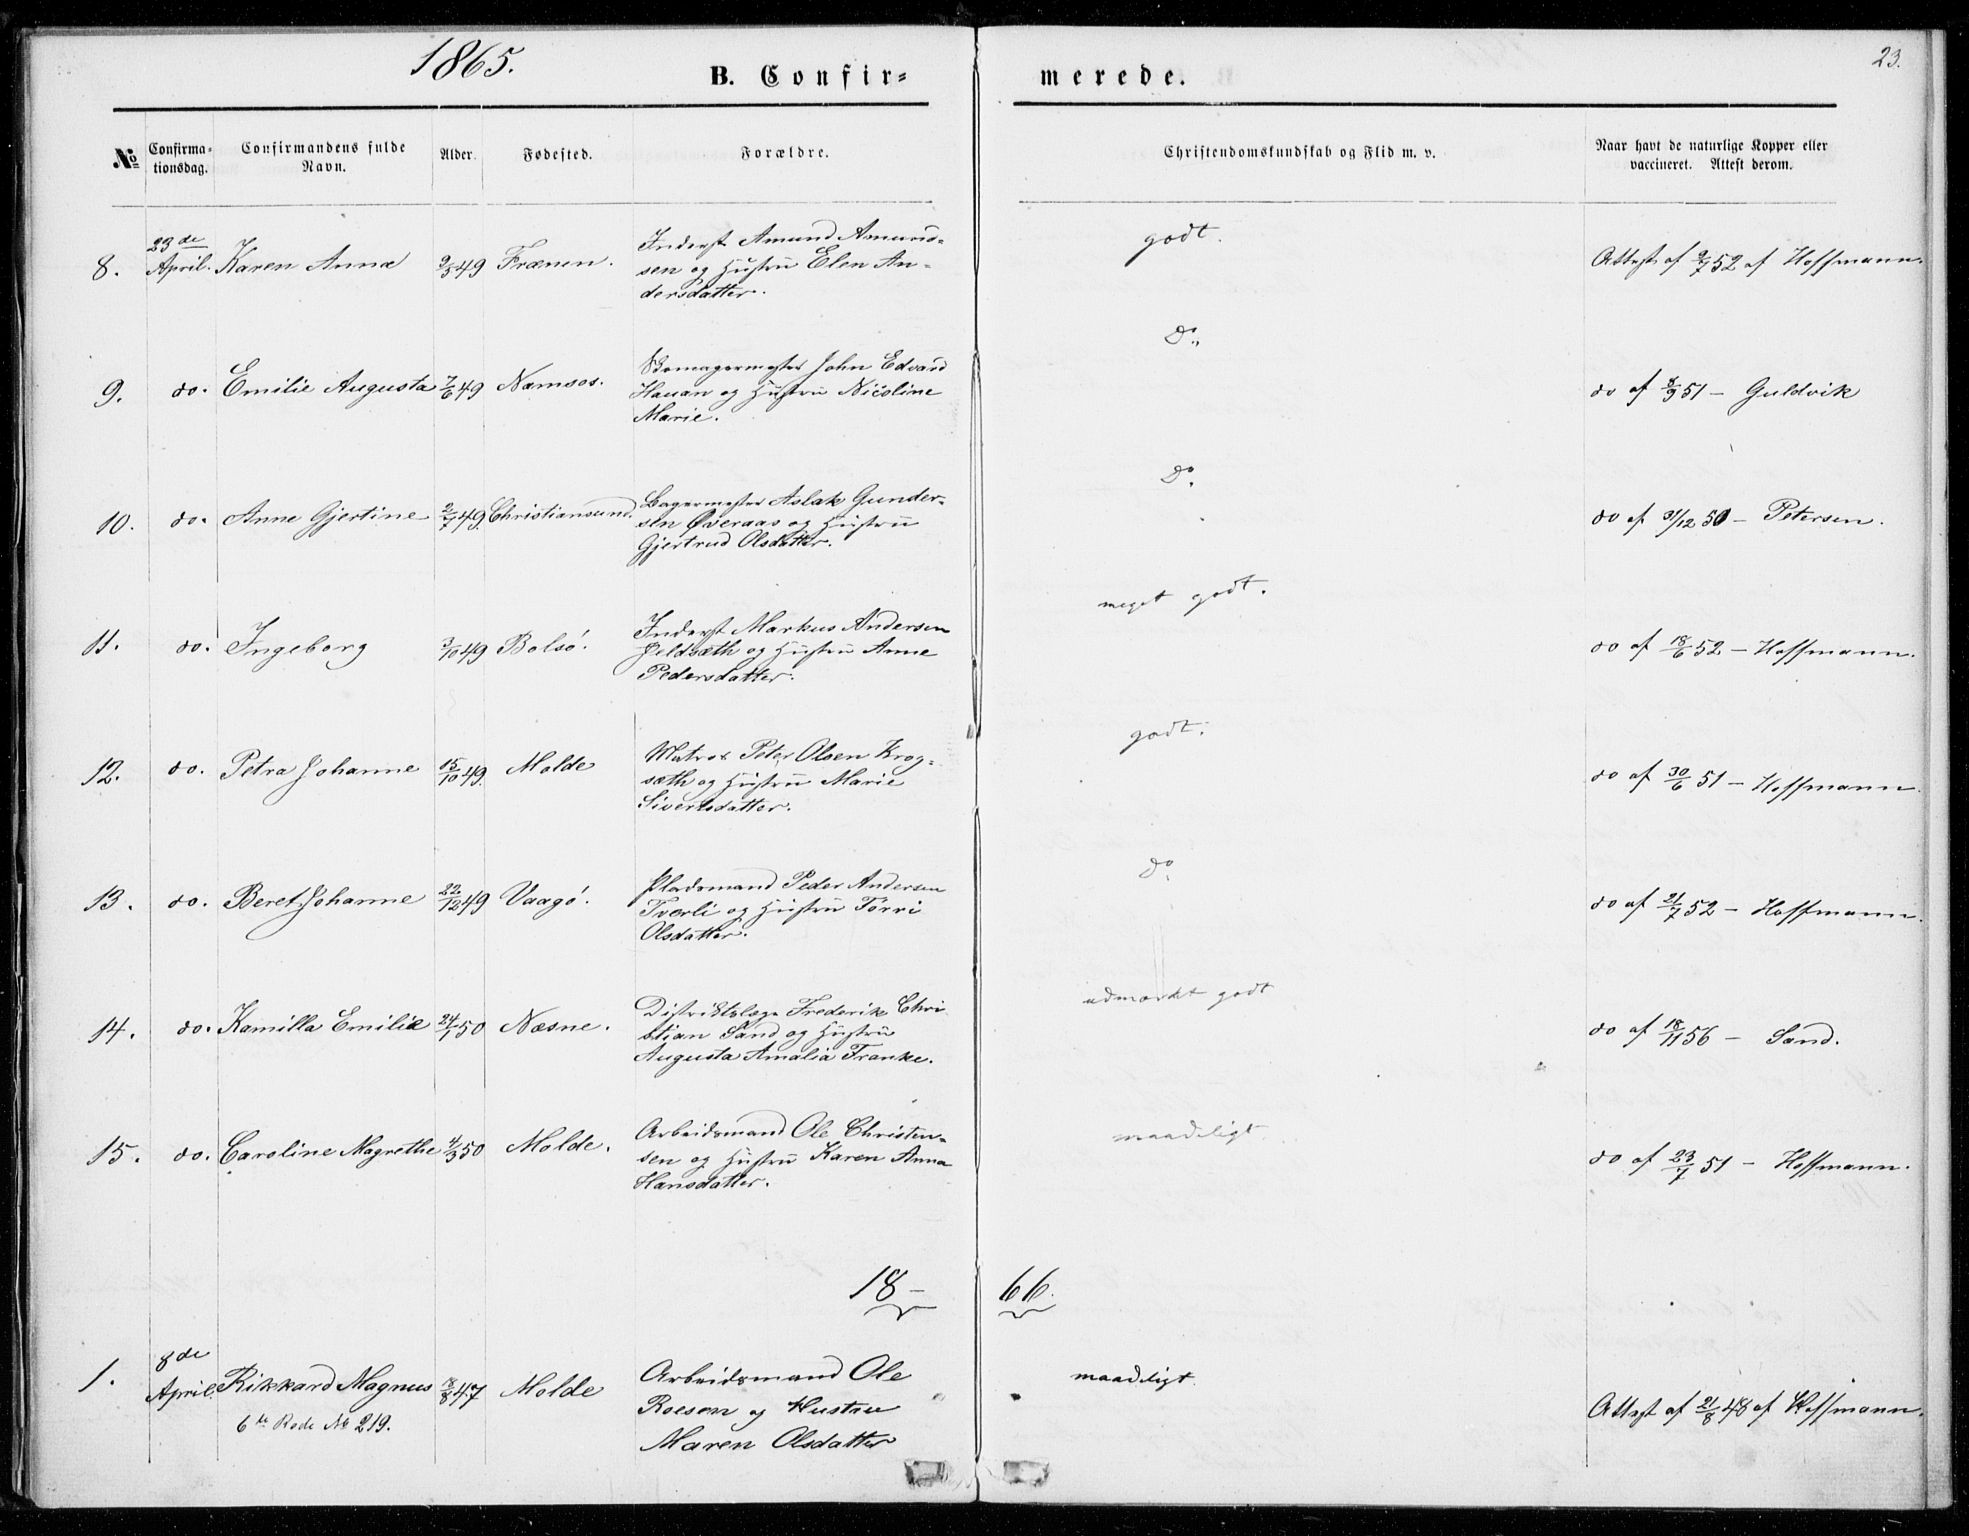 1865.
23.
B. Confir= merede.
No
Confirma=
tionsdag.
Confirmandens fulde
Navn.
Alder.
Fødested.
Forældre.
Christendomskundskab og Flid m. v.
Naar havt de naturlige Kopper eller
vaccineret. Attest derom.
8. 23de April. Karen Anna 9/3 49 Frænen.
Inderst Amund Amund=
sen og Hustru Elen An=
dersdatter.
godt.
Attest af 9/7 52 af Hoffmann.
9. do. Emilie Augusta 7/6 49 Namsos.
John Edvard
Hauan og Hustru Nicoline
Marie.
Do.
do af 8/9 51 – Guldvik
10. do. Anne Gjertine 2/7 49. Christiansund.
Bagermester Aslak Gunder=
sen Øveraas og Hustru
Gjertrud Olsdatter.
Do.
do af 31/12 50 – Petersen.
11. do. Ingeborg 3/10 49 Bolsø.
Inderst Markus Andersen
Jeldsæth og Hustru Anne
Pedersdatter.
meget godt.
do af 18/6 52 – Hoffmann.
12. do. Petra Johanne 15/10 49. Molde
Matros Peter Olsen Krog=
sæth og Hustru Marie
Sivertsdatter.
godt.
do af 30/6 51 – Hoffmann.
13. do. Beret Johanne 22/12 49 Vaagø.
Pladsmand Peder Andersen
Tverli og Hustru Torri
Olsdatter.
do
do af 21/7 52 – Hoffmann.
14. do. Kamilla Emilie 24/1 50 Næsne.
Distriktslæge Frederik Chri
stian Sand og Hustru
Augusta Amalia Franke.
udmærket godt
do af 18/11 56 – Sand.
15. do. Caroline Magrethe 4/3 50 Molde.
Arbeidsmand Ole Christen=
sen og Hustru Karen Anna
Hansdatter.
maadeligt.
do af 23/7 51 – Hoffmann.
18– 66.
1. 8de April. Rikkard Magnus 18/8 47 Molde
6te Rode No 219.
Arbeidsmand Ole
Roesen og Hustru
Maren Olsdatter
maadeligt.
Attest af 21/8 48 af Hoffmann.